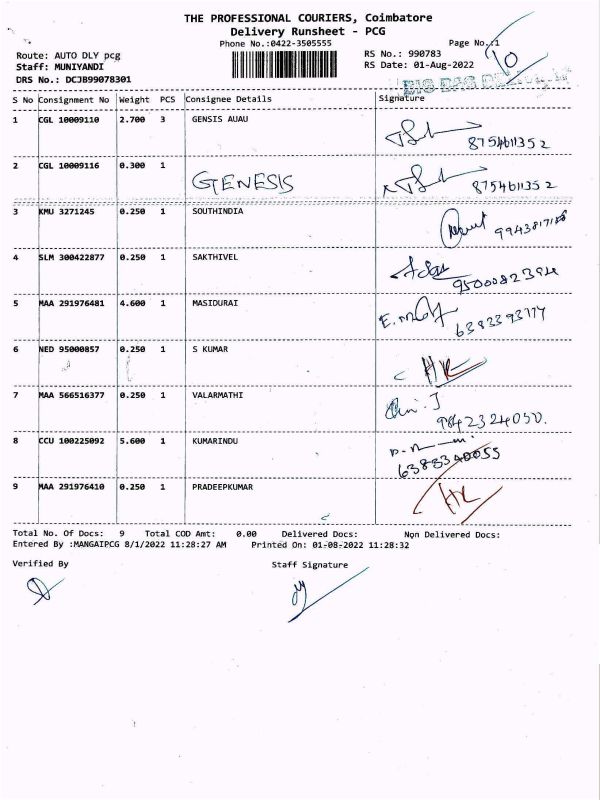 THE PROFESSIONAL COURIERS, Coimbatore
Delivery Runsheet - PCG
Phone No.:0422-3505555 Page No.:1
10
Route: AUTO DLY pcg RS No.: 990783
Staff: MUNIYANDI RS Date: 01-Aug-2022
DRS No.: DCJB99078301
S No Consignment No Weight PCS Consignee Details Signature
1 CGL 10009110 2.700 3 GENSIS AUAU
8754611352
2 CGL 10009116 0.300 1 GENESIS 8754611352
3 KMU 3271245 0.250 1 SOUTHINDIA
4 SLM 300422877 0.250 1 SAKTHIVEL
5 MAA 291976481 4.600 1 MASIDURAI
6 NED 95000857 0.250 1 S KUMAR
7 MAA 566516377 0.250 1 VALARMATHI
9842324050.
8 CCU 100225092 5.600 1 KUMARINDU
6383340055
9 MAA 291976410 0.250 1 PRADEEPKUMAR
Total No. Of Docs: 9 Total COD Amt: 0.00 Delivered Docs: Non Delivered Docs:
Entered By :MANGAIPCG 8/1/2022 11:28:27 AM Printed On: 01-08-2022 11:28:32
Verified By Staff Signature